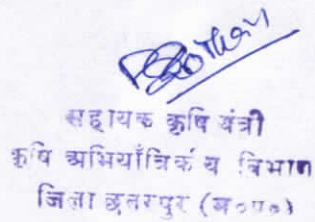 सहायक कृषि यंत्री
कृषि अभियाँत्रिकीय विभाग
जिला छतरपुर (म०प्र०)